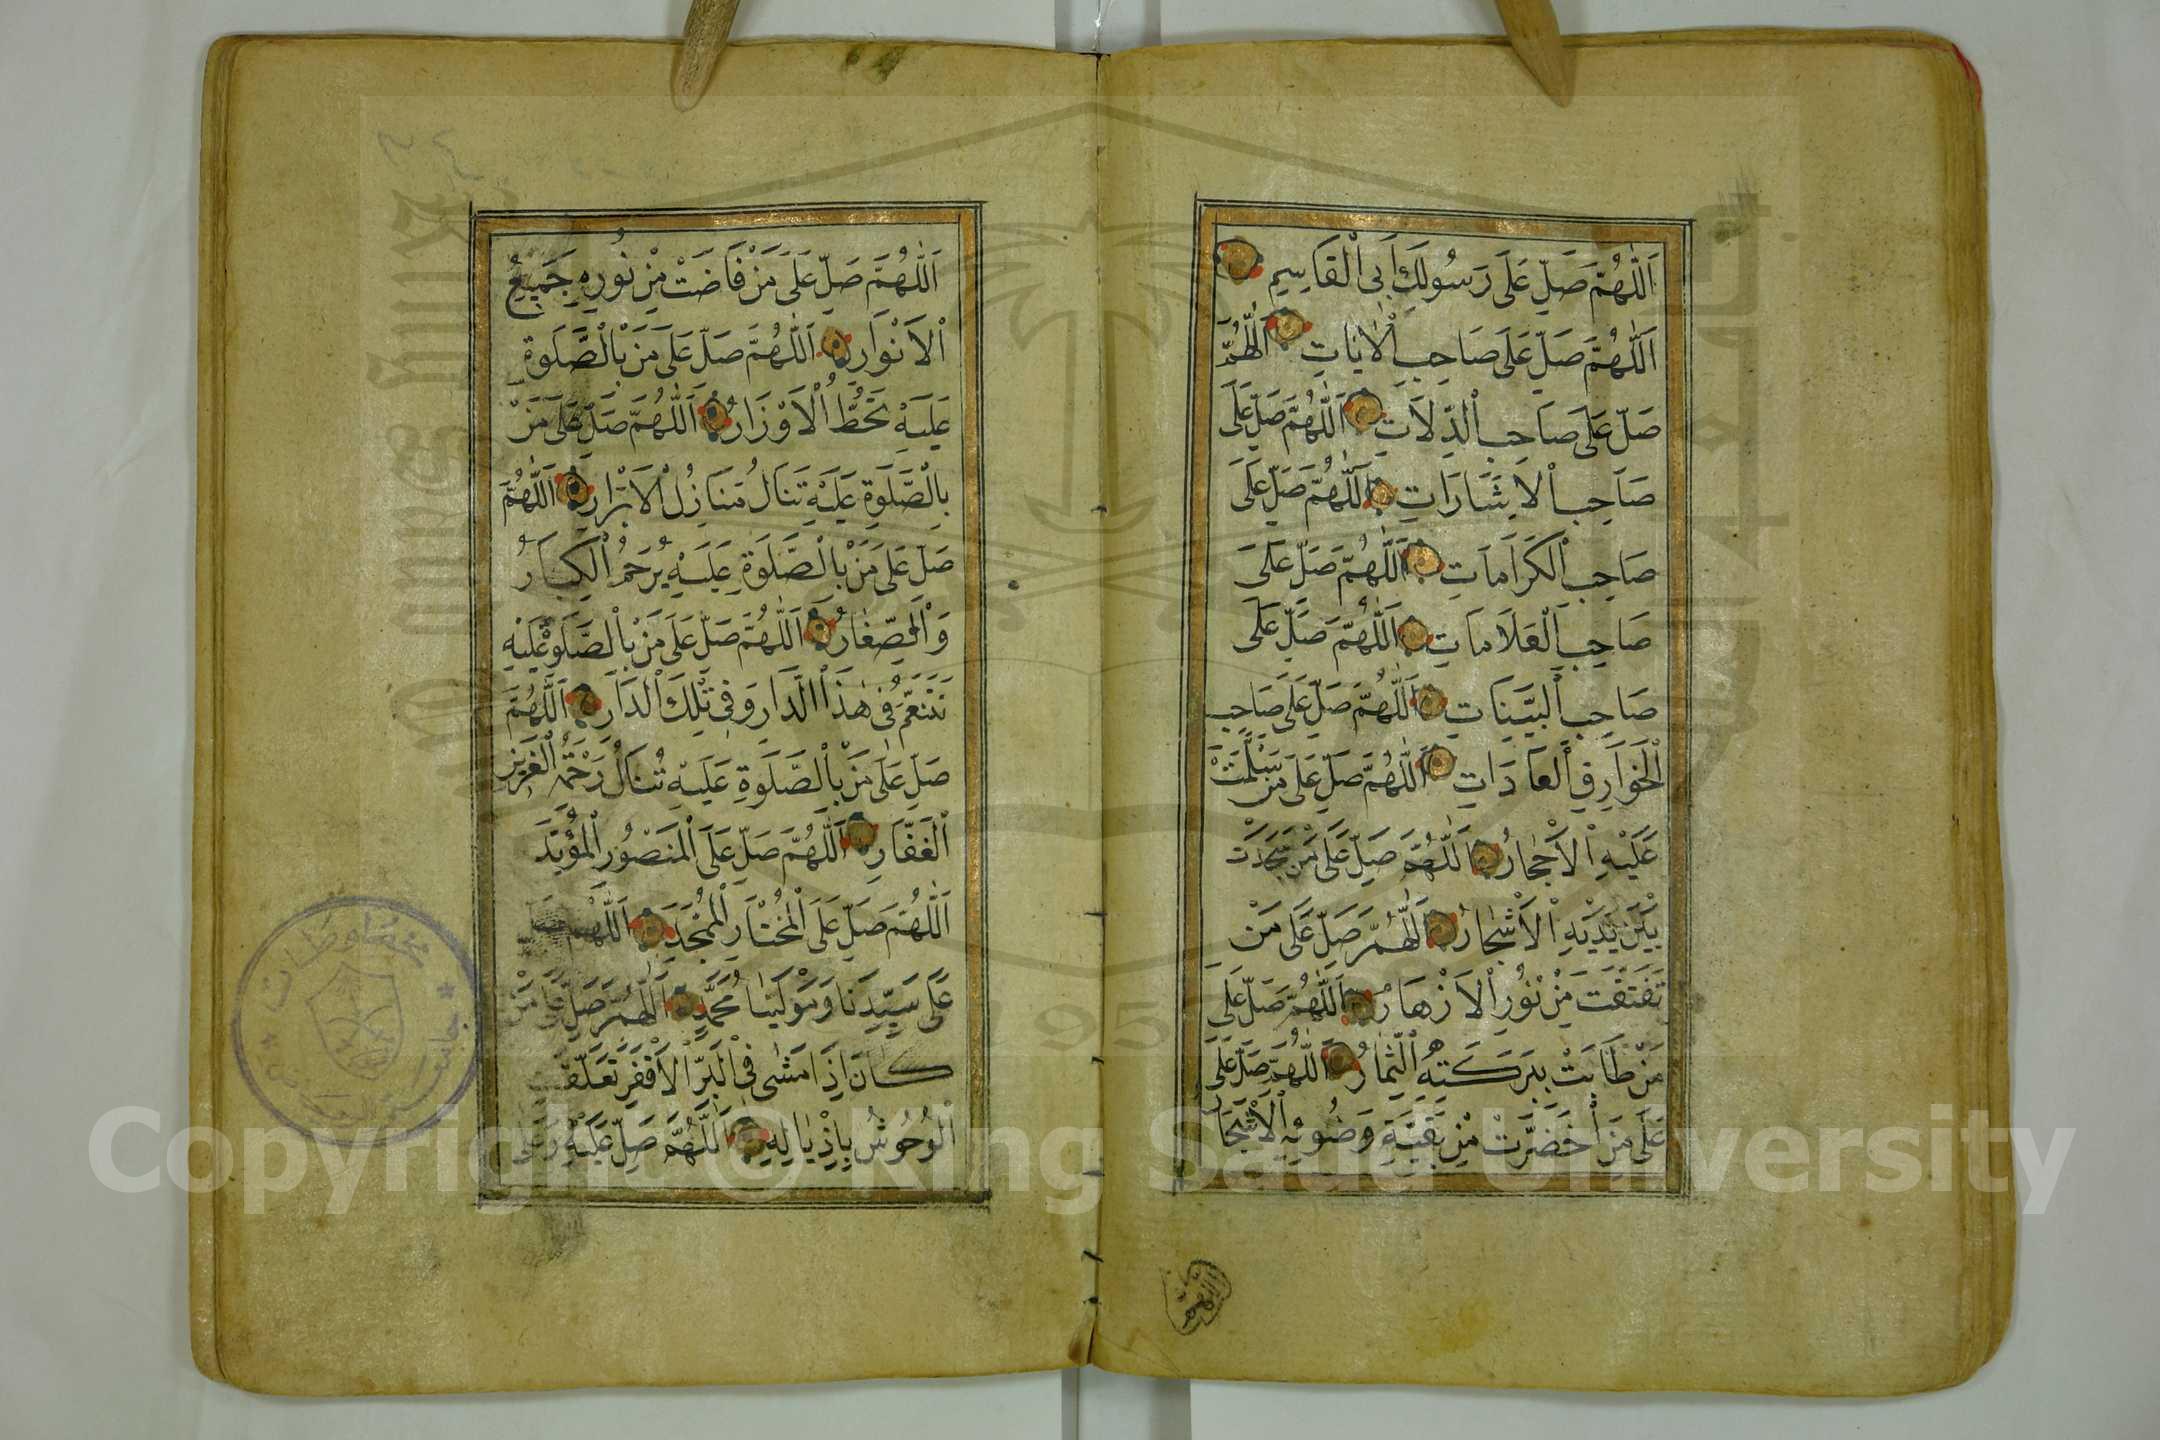 اَللّٰهُمَّ صَلِّ عَلَى رَسُولِكَ اَبِى اْلقَاسِمِ
اَللّٰهُمَّ صَلِّ عَلَى صَاحِبِ اْلاٰيَاتِ اَللّٰهُمَّ
صَلِّ عَلَى صَاحِبِ الدِّلَاتِ اَللّٰهُمَّ صَلِّ عَلَى
صَاحِبِ اْلاِشَارَاتِ اَللّٰهُمَّ صَلِّ عَلَى
صَاحِبِ اْلكَرَامَاتِ اَللّٰهُمَّ صَلِّ عَلَى
صَاحِبِ اَلْعَلَامَاتِ اَللّٰهُمَّ صَلِّ عَلَى
صَاحِبِ اَلْبَيِّنَاتِ اَللّٰهُمَّ صَلِّ عَلَى صَاحِبِ
اْلخَوَارِقِ اَلْعَادَاتِ اَللّٰهُمَّ صَلِّ عَلَى مَنْ سَلَّمَتْ
عَلَيْهِ اْلاَحْجَارُ اَللّٰهُمَّ صَلِّ عَلَى مَنْ سَجَدَتْ
بَيْنَ يَدَيْهِ اْلاَشْجَارُ اَللّٰهُمَّ صَلِّ عَلَى مَنْ
تَفَتَقَتْ مِنْ نُوْرِهِ اْلاَزْهَارُ اَللّٰهُمَّ صَلِّ عَلَى
مَنْ طَابَتْ بِبَرَكَتِهِ اْلثِّمَارُ اَللّٰهُمَّ صَلِّ عَلَى
عَلَى مَنْ اخْضَرَّتْ مِنْ بَقِيَّةِ وَضُوئِهِ اْلاَشْجَارُ
اَللّٰهُمَّ
اَللّٰهُمَّ صَلِّ عَلَى مَنْ فَاضَتْ مِنْ نُورِهِ جَمِيعُ
اْلاَنْوَارِ اَللّٰهُمَّ صَلِّ عَلَى مَنْ بِالْصَّلَوةِ
عَلَيْهِ تَحُطُّ اْلاَوْزَارُ اَللّٰهُمَّ صَلِّ عَلَى مَنْ
بِالْصَّلَوةِ عَلَيْهِ تَنَالُ مَنَازِلُ اْلاَبْرَارِ اَللّٰهُمَّ
صَلِّ عَلَى مَنْ بِالْصَّلَوةِ عَلَيْهِ يُرْحَمُ اْلكِبَارُ
وَاْلصِّغَارُ اَللّٰهُمَّ صَلِّ عَلَى مَنْ بِالْصَّلَوةِ عَلَيْهِ
نَتَنَعَّمُ فِى هٰذَا الدَّارِ وَفِى تِلْكَ الْدَّارِ اَللّٰهُمَّ
صَلِّ عَلٰى مَنْ بِالْصَّلَوةِ عَلَيْهِ تُنَالُ رَحْمَةُ اْلعَزِيزِ
اْلغَفَّارِ اَللّٰهُمَّ صَلِّ عَلَى اْلمَنْصُوْرِ اْلمُؤَيَّدِ
اَللّٰهُمَّ صَلِّ عَلَى اْلمُخْتَارِ اْلمُمَجَّدِ اَللّٰهُمَّ صَلِّ
عَلَى سَيِّدِنَا وَمَوْلَينَا مُحَمَّدٍ اَللّٰهُمَّ صَلِّ عَلَى مَنْ
كَانَ اِذَا مَشٰى فِى اْلبَرِّ اْلاَقْفَرِ تَعَلَّقَتْ
اْلوُحُوشُ بِاِذْيَالِهِ اَللّٰهُمَّ صَلِّ عَلَيْهِ وَعَلَى
Copyright © King Saud University
1957